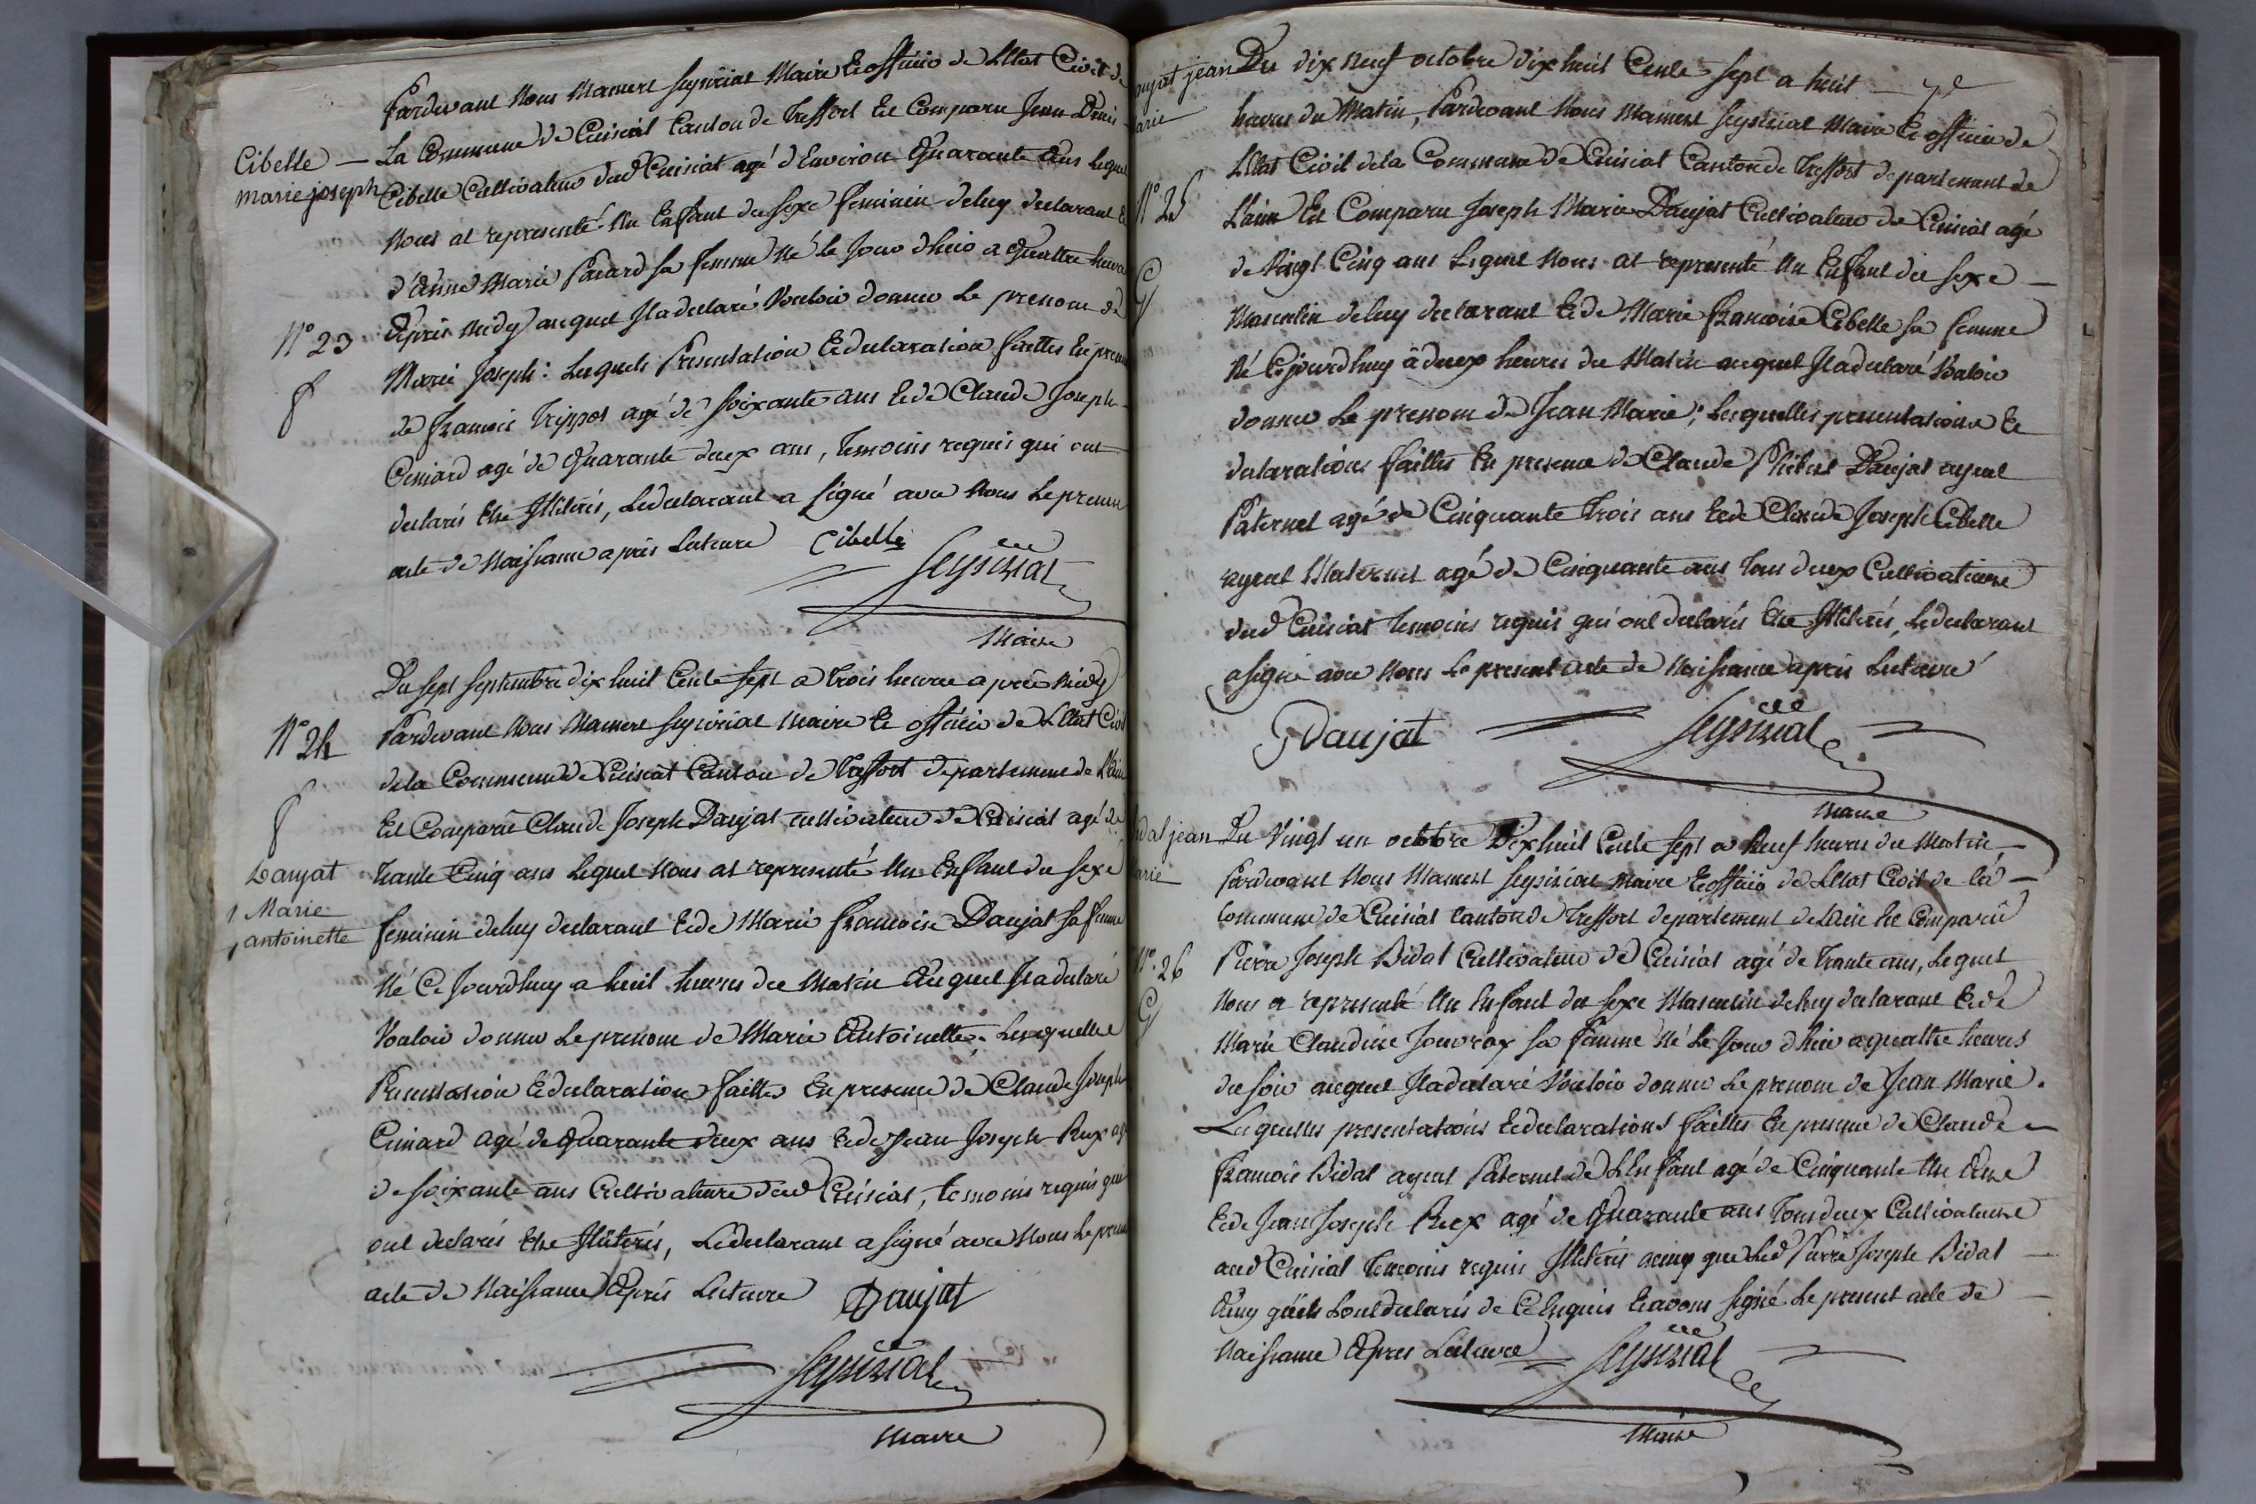 Pardevant Nous Mamert Seyssiriat Maire Et officier de L'Etat Civil de
La Commune de Cuisiat Canton de Treffort Est Comparu Jean Denis
Cibelle
marie joseph
Cibelle Cultivateur dud Cuisiat agé d'Environ Quarante Ans Lequel
Nous at representé Un Enfant du sexe feminin de luy declarant Et
d'Anne Marie sa femme Né le Jour d'hier a Quattre heures
N° 23
Après Midy auquel Il a declaré Vouloir donner Le prenom de
Marie Joseph: Lesquels Presentation Et declaration faittes En presence
de francois agé de soixante ans Et de Claude Joseph
agé de Quarante deux ans, temoins requis qui ont
declarés Etre Illiterés, Le declarant a signé avec Nous Le present
acte de Naissance après Lecture Cibelle
Seyssiriat
Maire
Du sept septembre dix huit Cents sept a trois heures après Midy
N° 24
Pardevant Nous Mamert Seyssiriat Maire Et officier de L'Etat Civil
de la Commune de Cuisiat Canton de Treffort departement de L'Ain
Est Comparu Claude Joseph Daujat cultivateur de Cuisiat agé de
Daujat
Marie
antoinette
trante Cinq ans Lequel Nous at representé Un Enfant du sexe
feminin de luy declarant Et de Marie francoise Daujat sa femme
Né Ce Jourdhuy a huit heures du Matin Auquel Il a declaré
Vouloir donner Le prenom de Marie Antoinette. Lesquelles
Presentation Et declaration faittes En presence de Claude Joseph
agé de Quarante deux ans Et de Jean Joseph Rux agé
de soixante ans Cultivateurs dud Cuisiat, temoins requis qui
ont declarés Etre Illiterés, Le declarant a signé avec Nous Le present
acte de Naissance Après Lecture Daujat
Seyssiriat
Maire
Daujat jean
marie
Du dix Neuf octobre dix huit Cents sept a huit
heures du Matin, Pardevant Nous Mamert Seyssiriat Maire Et officier de
L'Etat Civil de la Commune de Cuisiat Canton de Treffort departement de
N° 25
L'ain Est Comparu Joseph Marie Daujat Cultivateur de Cuisiat agé
de Vingt Cinq ans Lequel Nous at representé Un Enfant du sexe
Masculin de luy declarant Et de Marie francoise Cibelle sa femme
Né Cejourdhuy à deux heures du Matin auquel Il a declaré Valoir
donner Le prenom de Jean Marie; Lesquelles presentations Et
declarations faittes En presence de Claude Philibert Daujat ayeul
Paternel agé de Cinquante trois ans Et de Claude Joseph Cibelle
ayeul Maternel agé de Cinquante ans tous deux Cultivateurs
dud Cuisiat temoins requis qui ont declarés Etre Illiterés, Le declarant
a signé avec Nous Le present acte de Naissance après Lecture
Daujat Seyssiriat
Maire
Bidal jean
marie
Du Vingt un octobre Dix huit Cents sept a Neuf heures du Matin
Pardevant Nous Mamert Seyssiriat Maire Et officier de L'Etat Civil de la
Commune de Cuisiat canton de Treffort departement de L'ain Est Comparu
N° 26
Pierre Joseph Bidal Cultivateur de Cuisiat agé de Trante ans, Lequel
Nous a representé Un Enfant du sexe Masculin de luy declarant Et de
Marie Claudine Jouvray sa femme Né Le Jour d'hier a quattre heures
du soir auquel Il a declaré Vouloir donner Le prenom de Jean Marie.
Lesquelles presentations Et declarations faittes En presence de Claude
francois Bidal ayeul Paternel de L'Enfant agé de Cinquante Un Ans
Et de Jean Joseph Rux agé de Quarante ans Tous deux Cultivateurs
aud Cuisiat temoins requis Illiterés ainsy que Led Pierre Joseph Bidal
Ainsy qu'ils L'ont declarés de Ce Enquis Et avons signé Le present acte de
Naissance Après Lecture Seyssiriat
Maire